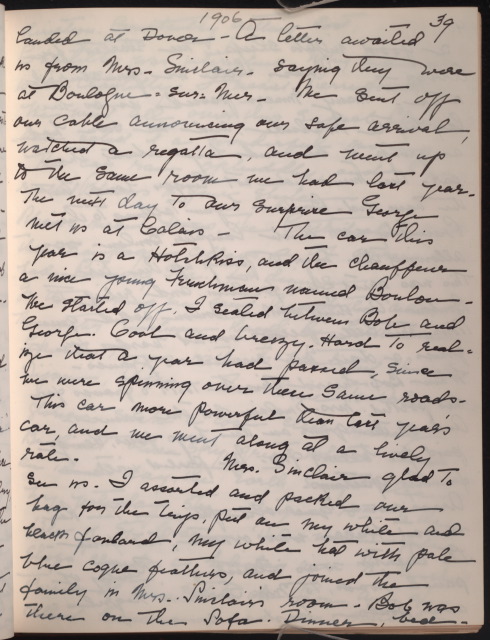 1906
39
landed at Dover - A letter awaited
us from Mrs. Sinclair. saying they were
at Boulogne-sur-Mer. We sent off
our cable announcing our safe arrival,
watched a regatta, and went up
to the same room we had last year.
The next day to our surprise George
met us at Calais - The car this
year is a HotchKiss, and the chauffeur
a nice young Frenchman named
We started off. I seated between Bob and
George. Cool and breezy. Hard to real-
ize that a year had passed, since
we were spinning over these same roads.
This car more powerful than last year's
car, and we went along at a lively
rate. Mrs. Sinclair glad to
see us. I assorted and packed our
bag for the trip, put on my white and
black foulard, my white hat with pale
blue coque feathers, and joined the
family in Mrs. Sinclair's room - Bob was
there on the sofa. Dinner, bed-